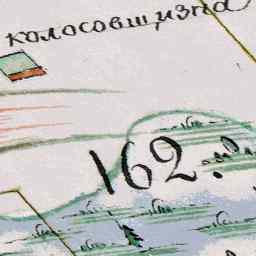 колосовщизна
162.